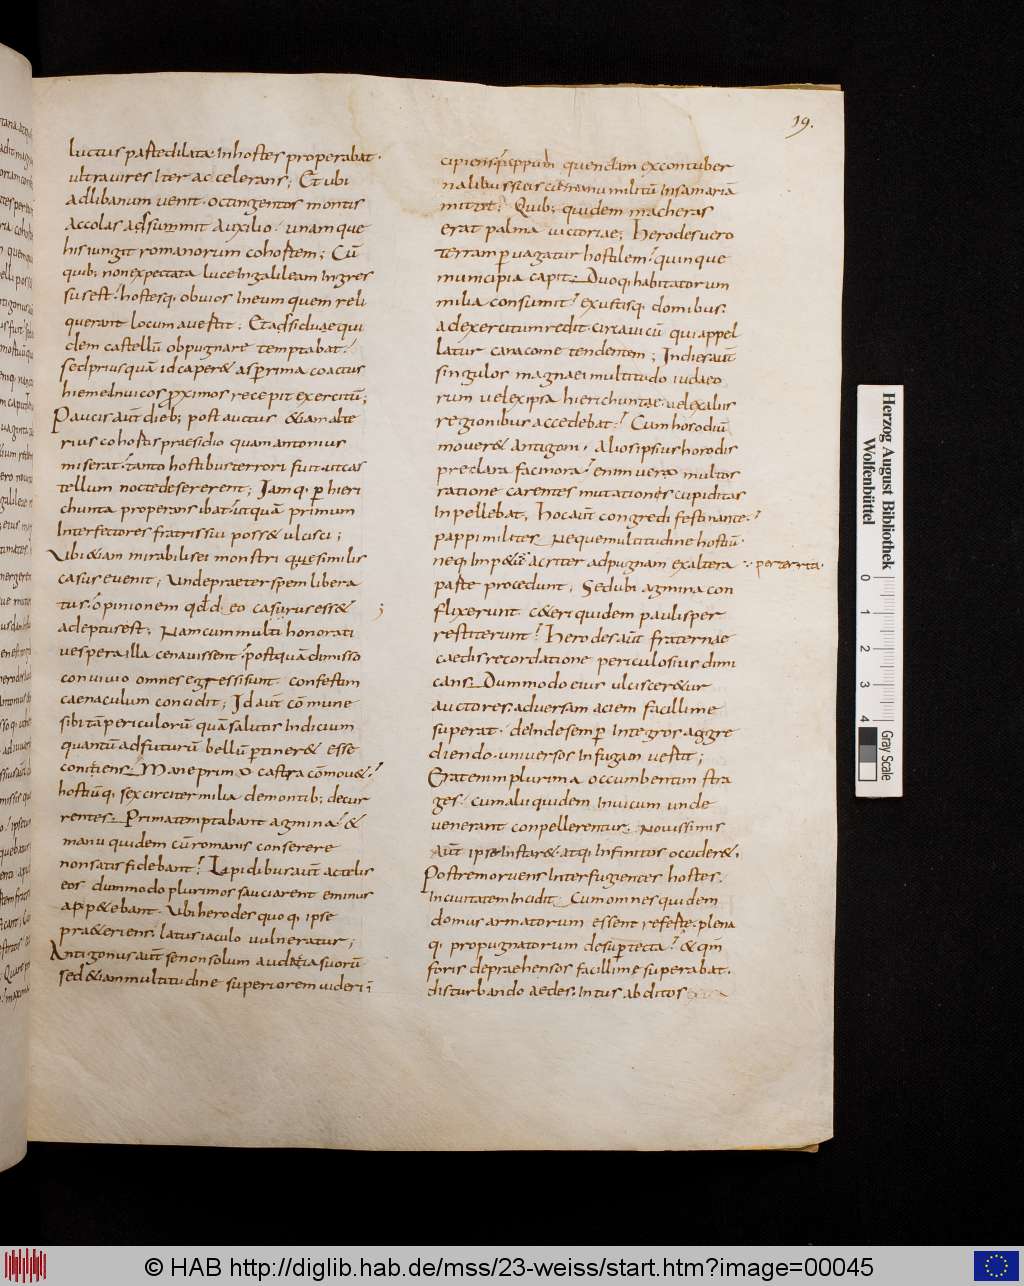 19.
luctus parte dilata. In hostes properabat.
ultra vires Iter accelerans; Et ubi
Ad libanum venit. octingentos montis
Accolas adsummit Auxilio. unamque
his iungit romanorum cohortem; Cū
quib; non expectata luce In galileam Ingres
sus est. hostesq. obvios In eum quem reli
querant locum avertit; Et adsidvae qui
dem castellū obpugnare temptabat.
sed prius quā id caper& asperrima coactus
hieme In uicos proximos recepit exercitū;
Paucis aūt dieb; post auctus &iam alte
rius cohortis praesidio quam antonius
miserat. tanto hostibus terrori fuit. ut cas
tellum nocte desererent; Iamq. p hieri
chunta properans ibat. ut quā primum
Interfectores fratris sui poss& ulcisci;
Vbi &iam mirabilis ei monstri que similis
casus evenit; Unde praeter spem libera
tus. opinionem qd dō eo casurus ess&
adeptus est; Nam cum multi honorati
vespera illa cenavissent. post quā dimisso
convivio omnes egressi sunt confestim
caenaculum concidit; Id aūt cōmune
sibi tā periculorū quā salutis Indicium
quantū ad futurū bellū ptiner& esse
coniciens. Mane primo castra cōmov&.
hostiūq. sex circiter milia de montib; decur
rentes. Prima temptabant agmina. &
manu quidem cū romanis conserere
non satis fidebant. Lapidibus aūt ac telis
eos dummodo plurimos sauciarent eminus
app&ebant. Ubi herodes quoq. ipse
pra&eriens. latus iaculo vulneratur;
Antigonus aūt se non solum audatia suorū
sed &iam multitudine superiorem videri
cipiens. pappum quendam ex contuber
nalibus suis
mittit. Quib; quidem macheras
erat palma victoriae; Herodes vero
Terram pvagatur hostilem. quinque
municipia capit. Duoq. habitatorum
milia consumit. exustisq. domibus.
ad exercitum redit circa vicū qui appel
latur canacome tendentem; Indies aūt
singulos magna ei multitudo iudaeo
rum vel ex ipsa hierichuntae. vel ex aliis
regionibus accedebat. Cum hos odiū
mover& Antigoni. Alios ipsius herodis
preclara facinora. enim vero multos
ratione carentes mutationes cupiditas
Inpellebat, hoc aūt congredi festinante.
pappi milites Neque multitudine hostiū.
neq. Imp&u acriter ad pugnam exaltera
perterriti.
parte procedunt; Sed ubi agmina con
flixerunt c&eri quidem paulisper
restiterunt. Herodes aūt fraternae
caedis recordatione periculosius dimi
cans. Dummodo eius ulciscer&ur
auctores. adversam aciem facillime
superat. deInde semp Integros aggre
diendo. universos In fugam vertit;
Erat enim plurima occumbentium stra
ges. cum alii quidem In vicum unde
venerant conpellerentur; Novissimis
Aūt ipse Instar& atq. Infinitos occider&.
Postremo ruens Inter fugientes hostes.
In civitatem Incidit. Cum omnes quidem
domus armatorum essent referte. plena
q. propugnatorum desup tecta. & qm̄
foris deprehensos facillime superabat.
disturbando aedes. Intus abditos
Herzog August Bibliothek
Wolfenbüttel
0 1 2 3 4
Gray Scale
© HAB http://diglib.hab.de/mss/23-weiss/start.htm?image=00045